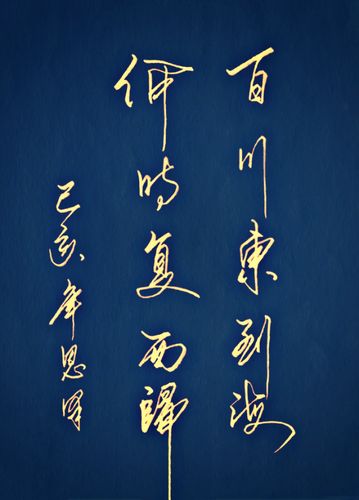 百川東到海
何時复西歸
己亥年